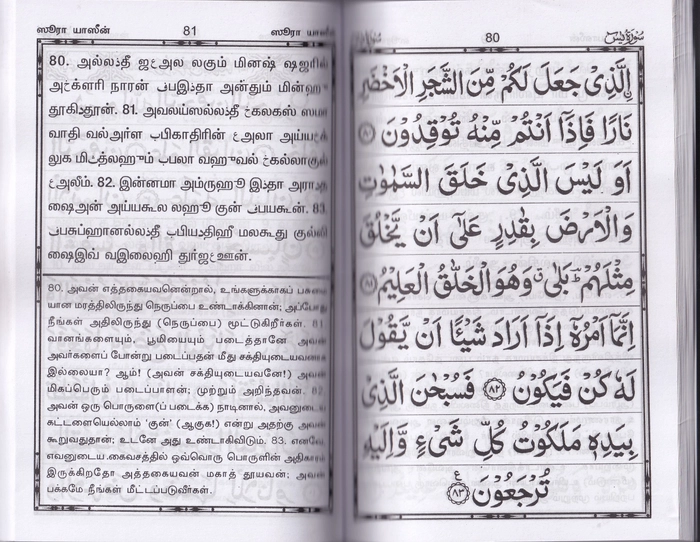 ஸூரா யாஸீன் 81 ஸூரா யாஸீ
80. அல்லதீ ஜஅல லகும் மினஷ் ஷஜரில்
அக்ளரி நாரன் பஇதா அன்தும் மின்ஹு
தூகிதூன். 81. அவலய்ஸல்லதீ கலகஸ் ஸமா
வாதி வல்அர்ள பிகாதிரின் அலா அய்யக்
லுக மித்லஹும் பலா வஹுவல் கல்லாகுல்
அலீம். 82. இன்னமா அம்ருஹூ இதா அராத
ஷைஅன் அய்யகூல லஹூ குன் பயகூன். 83.
பஸுப்ஹானல்லதீ பியதிஹீ மலகூது குல்லி
ஷைஇவ் வஇலைஹி துர்ஜஊன்.
80. அவன் எத்தகையவனென்றால், உங்களுக்காகப் பசுமை
யான மரத்திலிருந்து நெருப்பை உண்டாக்கினான்; அப்போது
நீங்கள் அதிலிருந்து (நெருப்பை) மூட்டுகிறீர்கள். 81.
வானங்களையும், பூமியையும் படைத்தானே அவன்
அவர்களைப் போன்று படைப்பதன் மீது சக்தியுடையவனாக
இல்லையா? ஆம்! (அவன் சக்தியுடையவனே!) அவன்
மிகப்பெரும் படைப்பாளன்; முற்றும் அறிந்தவன். 82.
அவன் ஒரு பொருளை(ப் படைக்க) நாடினால், அவனுடைய
கட்டளையெல்லாம் 'குன்' (ஆகுக!) என்று அதற்கு அவன்
கூறுவதுதான்; உடனே அது உண்டாகிவிடும். 83. எனவே,
எவனுடைய கைவசத்தில் ஒவ்வொரு பொருளின் அதிகாரம்
இருக்கிறதோ அத்தகையவன் மகாத் தூயவன்; அவன்
பக்கமே நீங்கள் மீட்டப்படுவீர்கள்.
80 سُوْرَةُ يٰسٓ
ۨالَّذِىْ جَعَلَ لَكُمْ مِّنَ الشَّجَرِ الْاَخْضَرِ
نَارًا فَاِذَآ اَنْتُمْ مِّنْهُ تُوْقِدُوْنَ ﴿٨٠﴾
اَوَ لَيْسَ الَّذِىْ خَلَقَ السَّمٰوٰتِ
وَالْاَرْضَ بِقٰدِرٍ عَلٰٓى اَنْ يَّخْلُقَ
مِثْلَهُمْ ؕ بَلٰى ۗ وَهُوَ الْخَلّٰقُ الْعَلِيْمُ ﴿٨١﴾
اِنَّمَآ اَمْرُهٗٓ اِذَآ اَرَادَ شَيْئًا اَنْ يَّقُوْلَ
لَهٗ كُنْ فَيَكُوْنُ ﴿٨٢﴾ فَسُبْحٰنَ الَّذِىْ
بِيَدِهٖ مَلَكُوْتُ كُلِّ شَىْءٍ وَّاِلَيْهِ
تُرْجَعُوْنَ ﴿٨٣﴾ ع